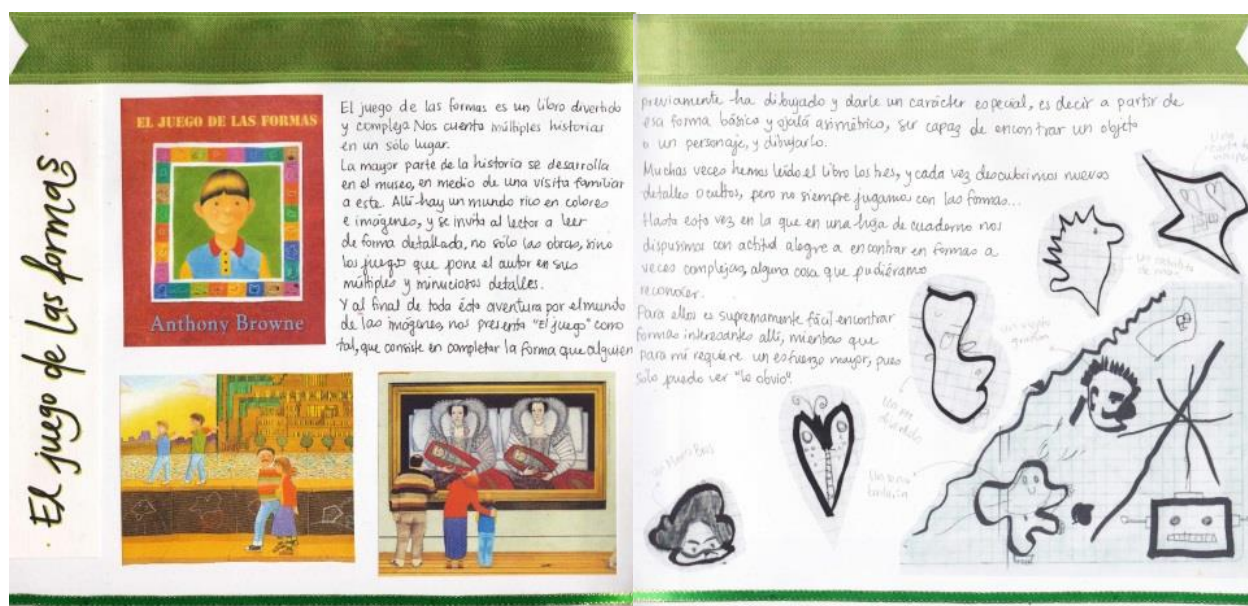 El juego de las formas
EL JUEGO DE LAS FORMAS
Anthony Browne
El juego de las formas es un libro divertido
y complejo. Nos cuenta múltiples historias
en un sólo lugar.
La mayor parte de la historia se desarrolla
en el museo, en medio de una visita familiar
a este. Allí hay un mundo rico en colores
e imágenes, y se invita al lector a leer
de forma detallada, no sólo las obras, sino
los juego que pone el autor en sus
múltiples y minuciosos detalles.
Y al final de toda ésta aventura por el mundo
de las imágenes, nos presenta "El juego" como
tal, que consiste en completar la forma que alguien
previamente ha dibujado y darle un carácter especial, es decir a partir de
esa forma básica y ojalá asimétrica, ser capaz de encontrar un objeto
o un personaje, y dibujarlo.
Muchas veces hemos leído el libro los tres, y cada vez descubrimos nuevos
detalles ocultos, pero no siempre jugamos con las formas...
Hasta esta vez en la que en una hoja de cuaderno nos
dispusimos con actitud alegre a encontrar en formas a
veces complejas, alguna cosa que pudiéramos
reconocer.
Para ellos es supremamente fácil encontrar
formas interesantes allí, mientras que
para mí requiere un esfuerzo mayor, pues
sólo puedo ver "lo obvio".
Una
un
Un pie
divertido